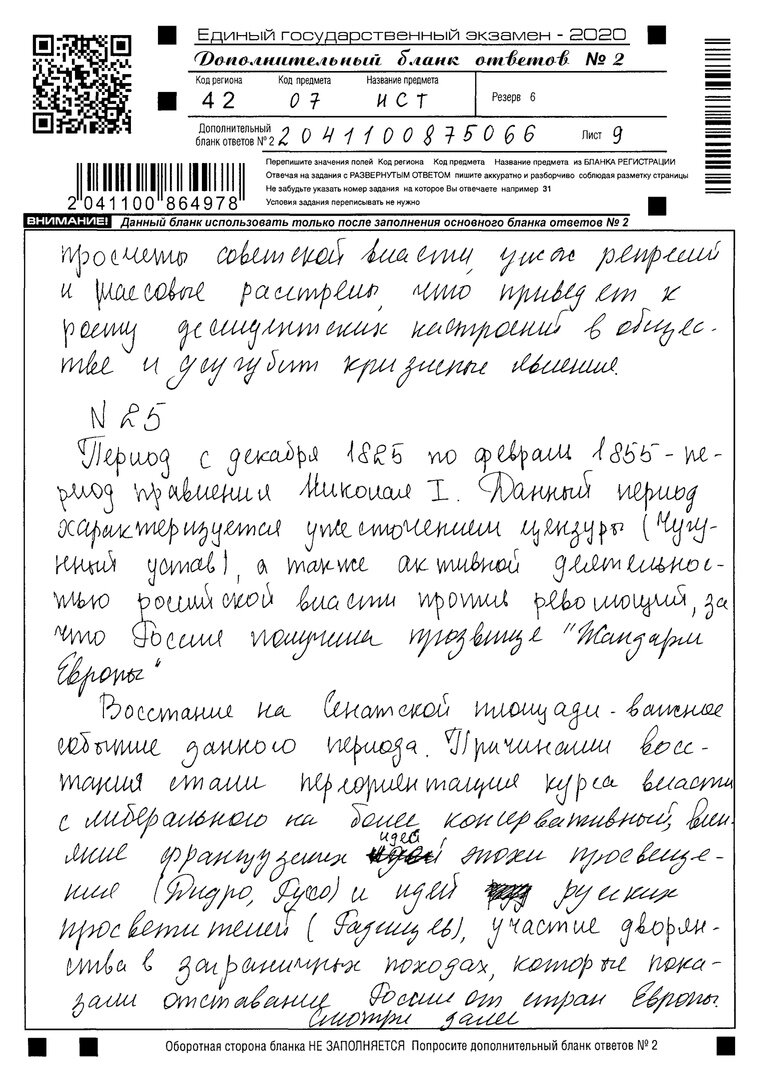 Единый государственный экзамен - 2020
Дополнительный бланк ответов № 2
Код региона Код предмета Название предмета
42 07 ИСТ Резерв 6
Дополнительный
бланк ответов № 2 2041100875066 Лист 9
Перепишите значения полей Код региона Код предмета Название предмета из БЛАНКА РЕГИСТРАЦИИ
Отвечая на задания с РАЗВЕРНУТЫМ ОТВЕТОМ пишите аккуратно и разборчиво соблюдая разметку страницы
Не забудьте указать номер задания на которое Вы отвечаете например 31
Условия задания переписывать не нужно
2 041100 864978
ВНИМАНИЕ! Данный бланк использовать только после заполнения основного бланка ответов № 2
просчеты советской власти, ужас репрессий
и массовые расстрелы, что приведет к
росту дессидентских настроений в общес-
тве и усугубит кризисные явления.
N 25
Период с декабря 1825 по февраль 1855 - пе-
риод правления Николая I. Данный период
характеризуется ужесточением цензуры (Чугу-
нный устав), а также активной деятельнос-
тью российской власти против революций, за
что Россия получила прозвище "Жандарм
Европы"
Восстание на Сенатской площади - важное
событие данного периода. Причинами восс-
тания стали переориентация курса власти
с либерального на более консервативный, вли-
яние французских идей эпохи просвеще-
ния (Дидро, Руссо) и идей русских
просветителей (Радищев), участие дворян-
ства в заграничных походах, которые пока-
зали отставание России от стран Европы.
Смотри далее
Оборотная сторона бланка НЕ ЗАПОЛНЯЕТСЯ Попросите дополнительный бланк ответов № 2